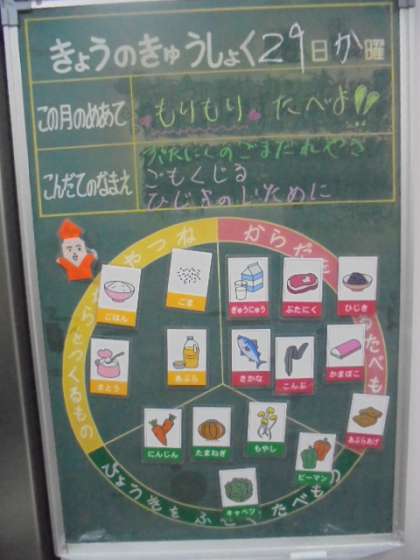 きょうのきゅうしょく 29日 か 曜
この月のめあて
もりもり たべよ!!
こんだてのなまえ
ぶたにくのごまだれやき
ごもくじる
ひじきのいために
やつね
からだを
ごはん
ごま
ぎゅうにゅう
ぶたにく
ひじき
さとう
あぶら
さかな
こんぶ
かまぼこ
にんじん
たまねぎ
もやし
ピーマン
あぶらあげ
キャベツ
からをつくるもの
たべも